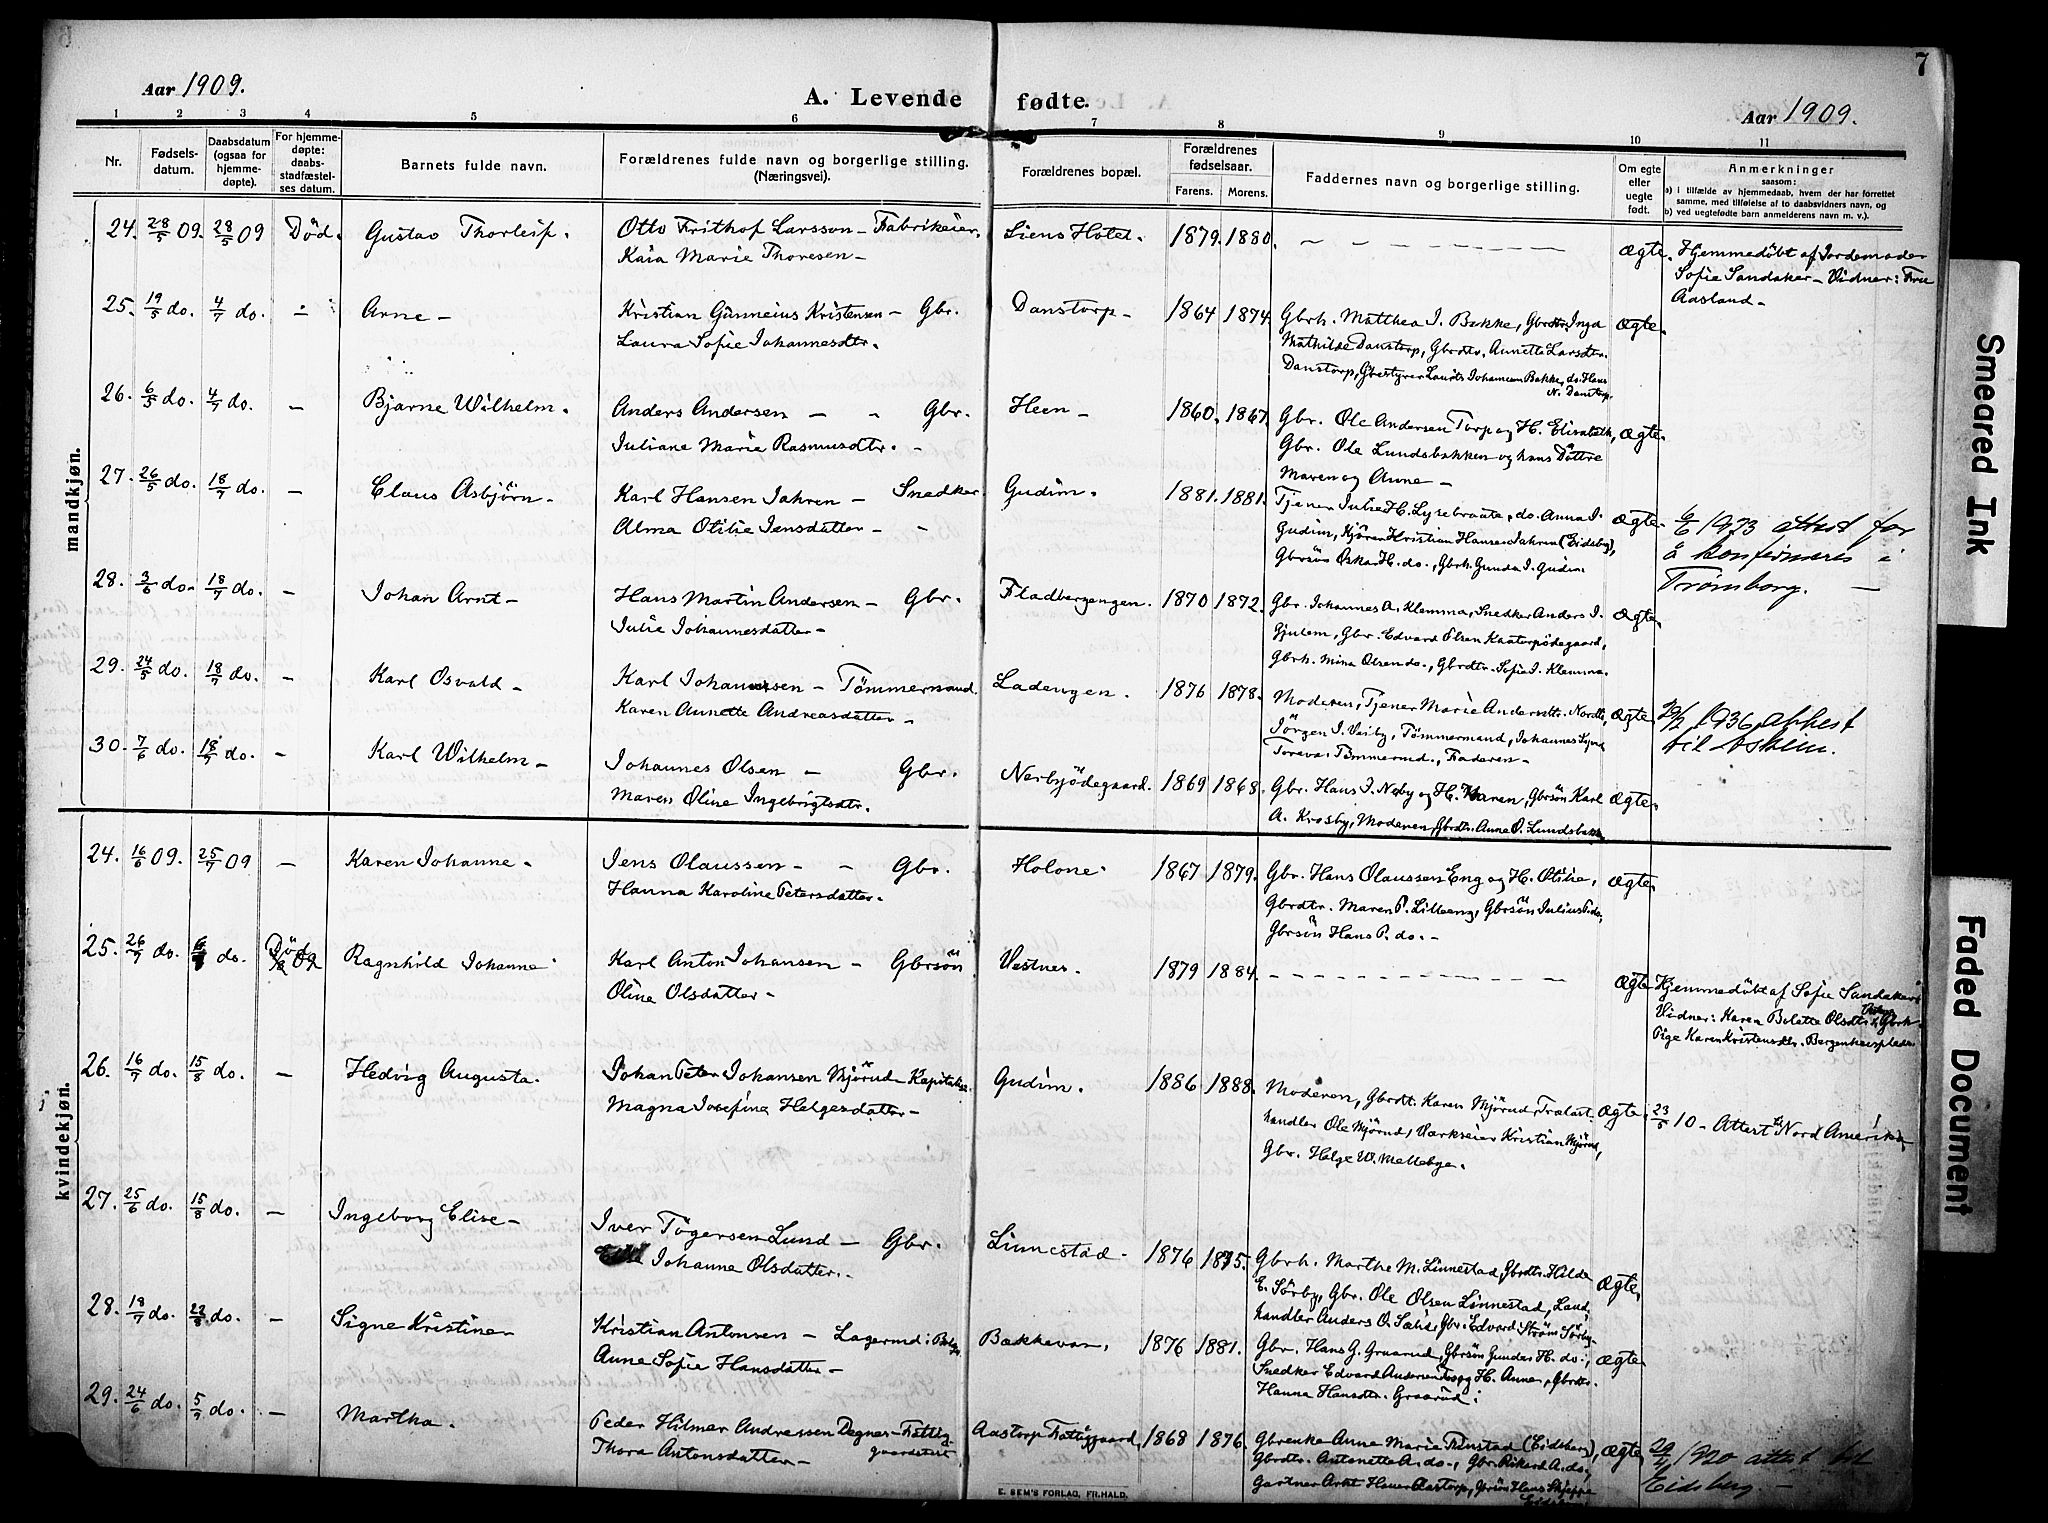 Aar 1909.
A. Levende fødte.
Aar 1909.
7
1 2 3 4 5 6 7 8 9 10 11
Nr.
Fødsels-
datum.
Daabsdatum
(ogsaa for
hjemme-
døpte).
For hjemme-
døpte:
daabs-
stadfæstel-
ses datum.
Barnets fulde navn.
Forældrenes fulde navn og borgerlige stilling.
(Næringsvei).
Forældrenes bopæl.
Forældrenes
fødselsaar.
Farens. Morens.
Faddernes navn og borgerlige stilling.
Om egte
eller
uegte
født.
Anmerkninger
saasom:
a) i tilfælde av hjemmedaab, hvem der har forrettet
samme, med tilføielse af to daabsvidners navn, og
b) ved uegtefødte barn anmelderens navn m. v.).
mandkjøn.
24. 28/5 09. 28/5 09 Død. Gustav Thorleif. Otto Frithof Larsson – Fabrikeier. Liens Hotel. 1879. 1880. – – – – – – – – ægte. Hjemmedøbt af Jordemoder
Kaia Marie Thoresen – Sofie Sandaker – Vidner: Fru
Aasland –
25. 19/5 do. 4/7 do. – Arne – Kristian Gunneius Kristensen – Gbr. Danstorp – 1864 1874. Gbrh. Matthea I. Bakke, Gbrdtr. Inga ægte.
Laura Sofie Johannesdtr. Mathilde Danstorp, Gbrdtr. Annette Larsdtr.
Danstorp, Gbestyrer Laurits Johansen Bakke, do. Hans
N. Danstorp.
26. 6/5 do. 4/7 do. – Bjarne Wilhelm. Anders Andersen – – Gbr. Heen – 1860. 1867. Gbr. Ole Andersen Torp og H. Elisabeth, ægte.
Juliane Marie Rasmusdtr. – Gbr. Ole Lundsbakken og hans Døttre
Maren og Anne –
27. 26/5 do. 18/7 do. – Claus Asbjørn – Karl Hansen Jahren – Snedker. Gudim. 1881. 1881. Tjener Julie H. Lysebraate, do. Anna I. ægte. 6/6 1923 attest for
Alma Otilie Jensdatter – – Gudim, Kjører Kristian Hansen Jahren (Eidsbg), å konfirmeres i
Gbrsøn Oskar H. do., Gbrh. Gunda I. Gudim. Trømborg. –
28. 3/6 do. 18/7 do. – Johan Arnt – Hans Martin Andersen – Gbr. Fladbergengen. 1870 1872. Gbr. Johannes A. Klemma, Snedker Anders I. ægte.
Julie Johannesdatter – Gjulem, Gbr. Edvard Olsen Kaatorpødegaard,
Gbrh. Mina Olsen do., Gbrdtr. Sofie I. Klemma.
29. 24/5 do. 18/7 do. – Karl Osvald – Karl Johannesen – Tømmermand. Ladengen. 1876 1878. Moderen, Tjener Marie Andersdtr. Nordb, ægte. 29/2 1936 attest
Karen Annette Andreasdatter – Jørgen I. Visby, Tømmermand, Johannes til Askim.
Tømmermd., Faderen –
30. 7/6 do. 18/7 do. – Karl Wilhelm – Johannes Olsen – Gbr. Nerbyødegaard. 1869 1868. Gbr. Hans I. Nerby og H. Karen, Gbrsøn Karl ægte.
Maren Oline Ingebrigtsdtr. A. Krosby, Moderen, Gbrdtr. Anne O. Lundsbakk
kvindekjøn.
24. 16/6 09. 25/7 09 – Karen Johanne – Jens Olaussen – – Gbr. Holone. 1867 1879. Gbr. Hans Olaussen Eng og H. Otilie, ægte.
Hanna Karoline Petersdatter. Gbrdtr. Maren P. Lilleeng, Gbrsøn Julius P. do,
Gbrsøn Hans P. do. –
25. 26/7 do. do. Døde 09 Ragnhild Johanne Karl Anton Johansen – Gbrsøn Vestnes. 1879 1884. – – – – – – – – ægte Hjemmedøbt af Sofie Sandaker
Oline Olsdatter – Vidner: Karen Bolette Olsdtr. Gbrh.
Pige Karen Kristensdtr. Bergenhusplads
26. 16/7 do. 15/8 do. – Hedvig Augusta. Johan Peter Johansen Mjørud – Kaptein. Gudim. 1886 1888. Moderen, Gbrdtr. Karen Mjørud, Trælast- ægte. 23/5 10 – Attest til Nord Amerika
Magna Josefine Helgesdatter – handler Ole Mjørud, Værkseier Kristian Mjørud,
Gbr. Helge W. Mellebye.
27. 25/6 do. 15/8 do. – Ingeborg Elise – Iver Tøgersen Lund – Gbr. Linnestad – 1876 1875. Gbrh. Marthe M. Linnestad, Gbrdtr. Hilda ægte.
Johanne Olsdatter. E. Sørby, Gbr. Ole Olsen Linnestad, Land-
handler Anders O. , Gbr. Edvard Strøm Sørby
28. 18/7 do. 22/8 do. – Signe Kristine Kristian Antonsen – Lagermd. i Bakkevan. 1876 1881. Gbr. Hans G. Graarud, Gbrsøn Gunder H. do., ægte
Anne Sofie Hansdatter – Snedker Edvard Andersen Torp og H. Anne, Gbrdtr.
Hanna Hansdtr. Graarud.
29. 24/6 do. 5/9 do. – Martha. Peder Hilmer Andreassen Degnes – Fattig- Aastorp Fattiggaard, 1868 1876 Gbrenke Anne Marie Finstad (Eidsberg), ægte 29/4 1920 attest til
Thora Antonsdatter – gaardsbest. Gbrdtr. Antonette A. do., Gbr. Rikard A. do, Eidsberg –
Gartner Arnt Hauer Aastorp, Gbrsøn Hans Skjeppe
E. SEM'S FORLAG, FR.HALD.
Smeared Ink
Faded Document